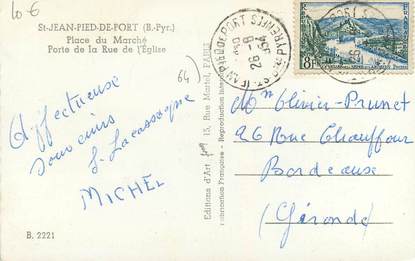 10-6
St-JEAN-PIED-DE-PORT (B.-Pyr.)
Place du Marché
Porte de la Rue de l'Église
64)
Affectueuse
souvenirs
L. Lacassagne
MICHEL
B. 2221
Editions d'Art 15, Rue Martel, PARIS
Fabrication Française - Reproduction Interdite
8F
Mr Olivier-Prunet
26 Rue Chauffour
Bordeaux
(Gironde)